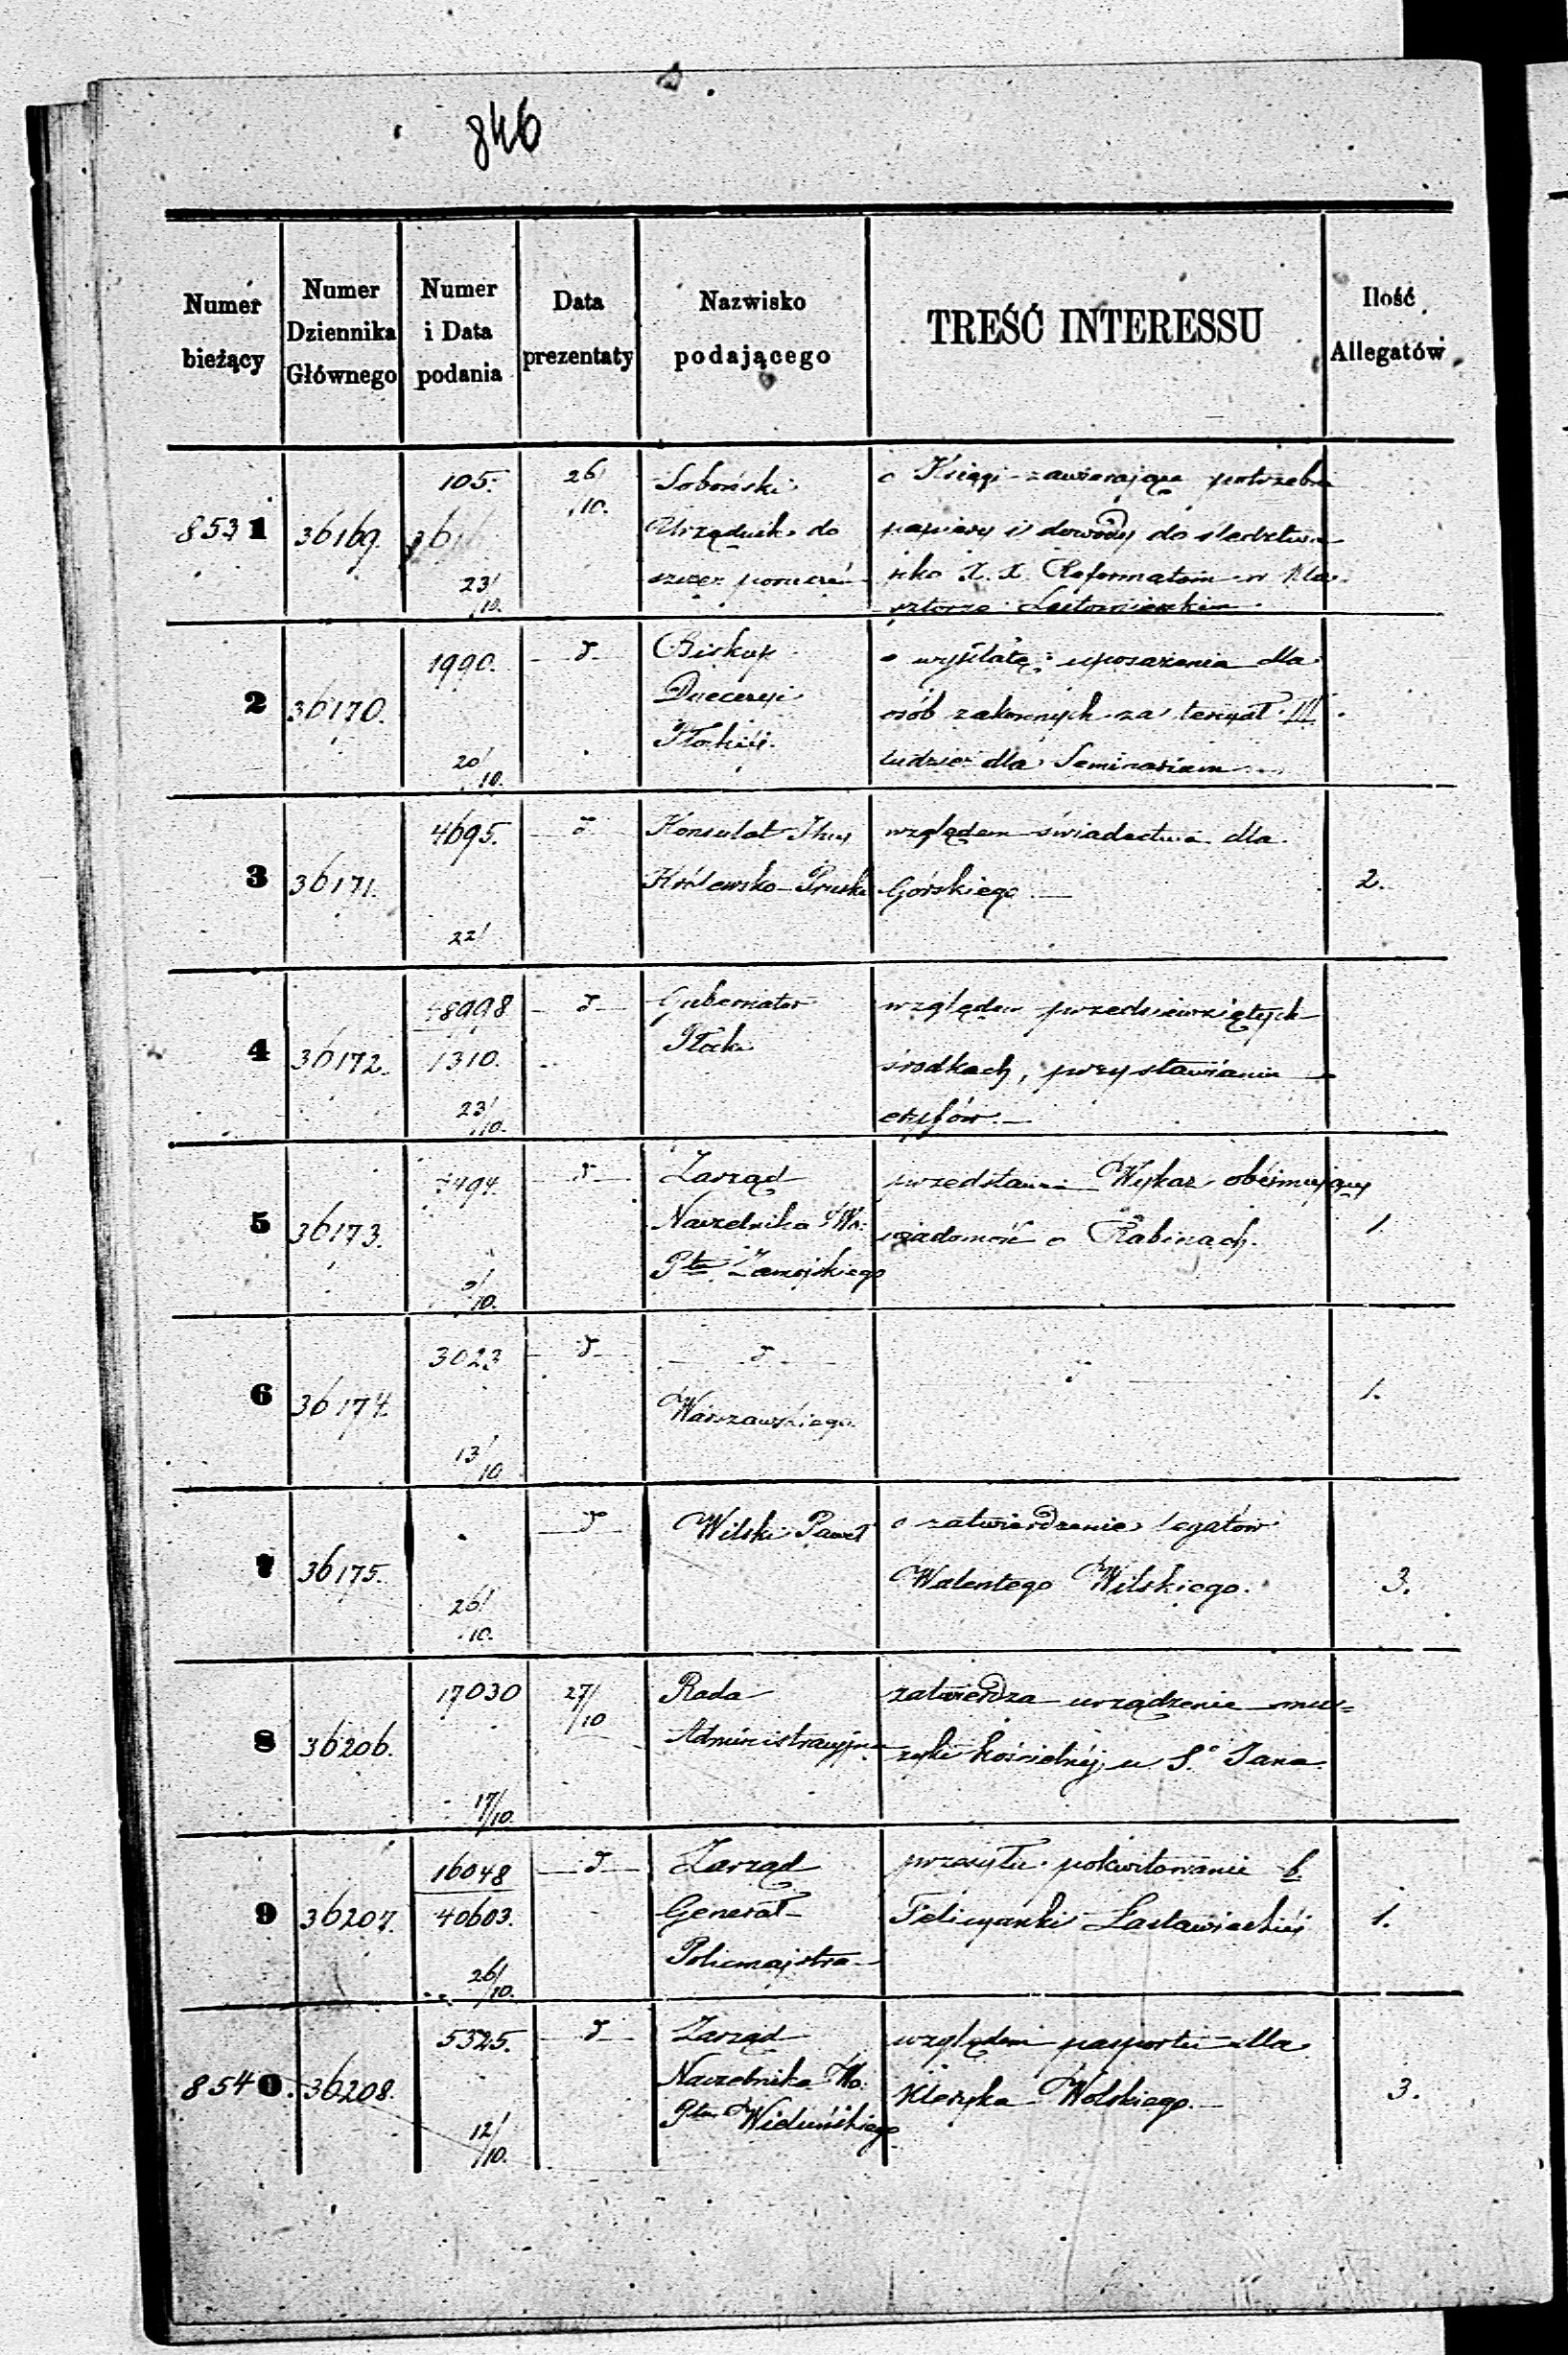 846
Numer bieżący
Numer Dziennika Głównego
Numer i Data podania
Data prezentaty
Nazwisko podającego
TREŚĆ INTERESSU
Ilość Allegatów
8531 36169. 105. 23/10. 26/10.
Soboński
Urzędnik do
szcze: poruczeń
o Księgi zawierające potrzebne
papiery i dowody do śledztwa
X. X. Reformatom w Kla-
sztorze
2 36170. 1990. 20/10. d
Biskup
Dyecezyi
Płockiéj.
o wypłatę uposażenia dla
osób zakonnych za tercyał III.
tudzież dla Seminarium
3 36171. 4695. 22/ d
Konsulat Jlny
Królewsko-Pruski
względem świadectwa dla
Górskiego
2.
4 36172. 8998 1310. 23/10. d
Gubernator
Płocki
względem przedsięwziętych
środkach, przy stawianiu
5 36173. 494. /10. d
Zarząd
Naczelnika Wo:
Ptu Zamojskiego
przedstawia Wykaz obejmujący
wiadomość o Rabinach.
1.
6 36174. 3023 13/10 d
d
Warszawskiego.
d
1.
7 36175. 26/10. d
Wilski Paweł
o zatwierdzenie legatów
Walentego Wilskiego.
3.
8 36206. 17030 17/10. 27/10
Rada
Administracyjna
zatwierdza urządzenie mu=
zyki kościelnéj u So Jana.
9 36207. 16048 40603. 26/10. d
Zarząd
Generał-
Policmajstra
przesyła pokwitowanie b.
Felicyanki
1.
8540. 36208. 5325. 12/10. d
Zarząd
Naczelnika Wo:
Ptu Wieluńskiego
względem pasportu dla
Kleryka Wolskiego.
3.